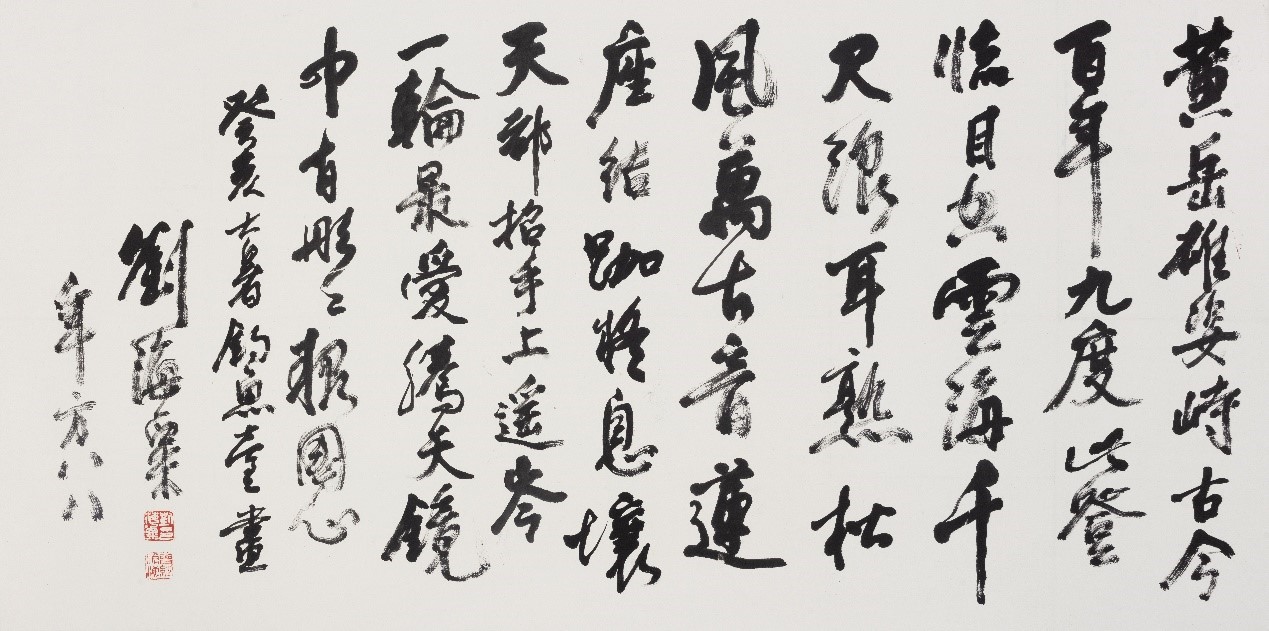 黃岳雄姿峙古今
百年九度此登
臨目空雲海千
尺浪耳熟松
風萬古音蓮
座結跏疑息壤
天都招手上遥岑
一輪最愛騰天鏡
中有彤彤報國心
癸亥大暑釣魚臺畫
劉海粟
年方八八